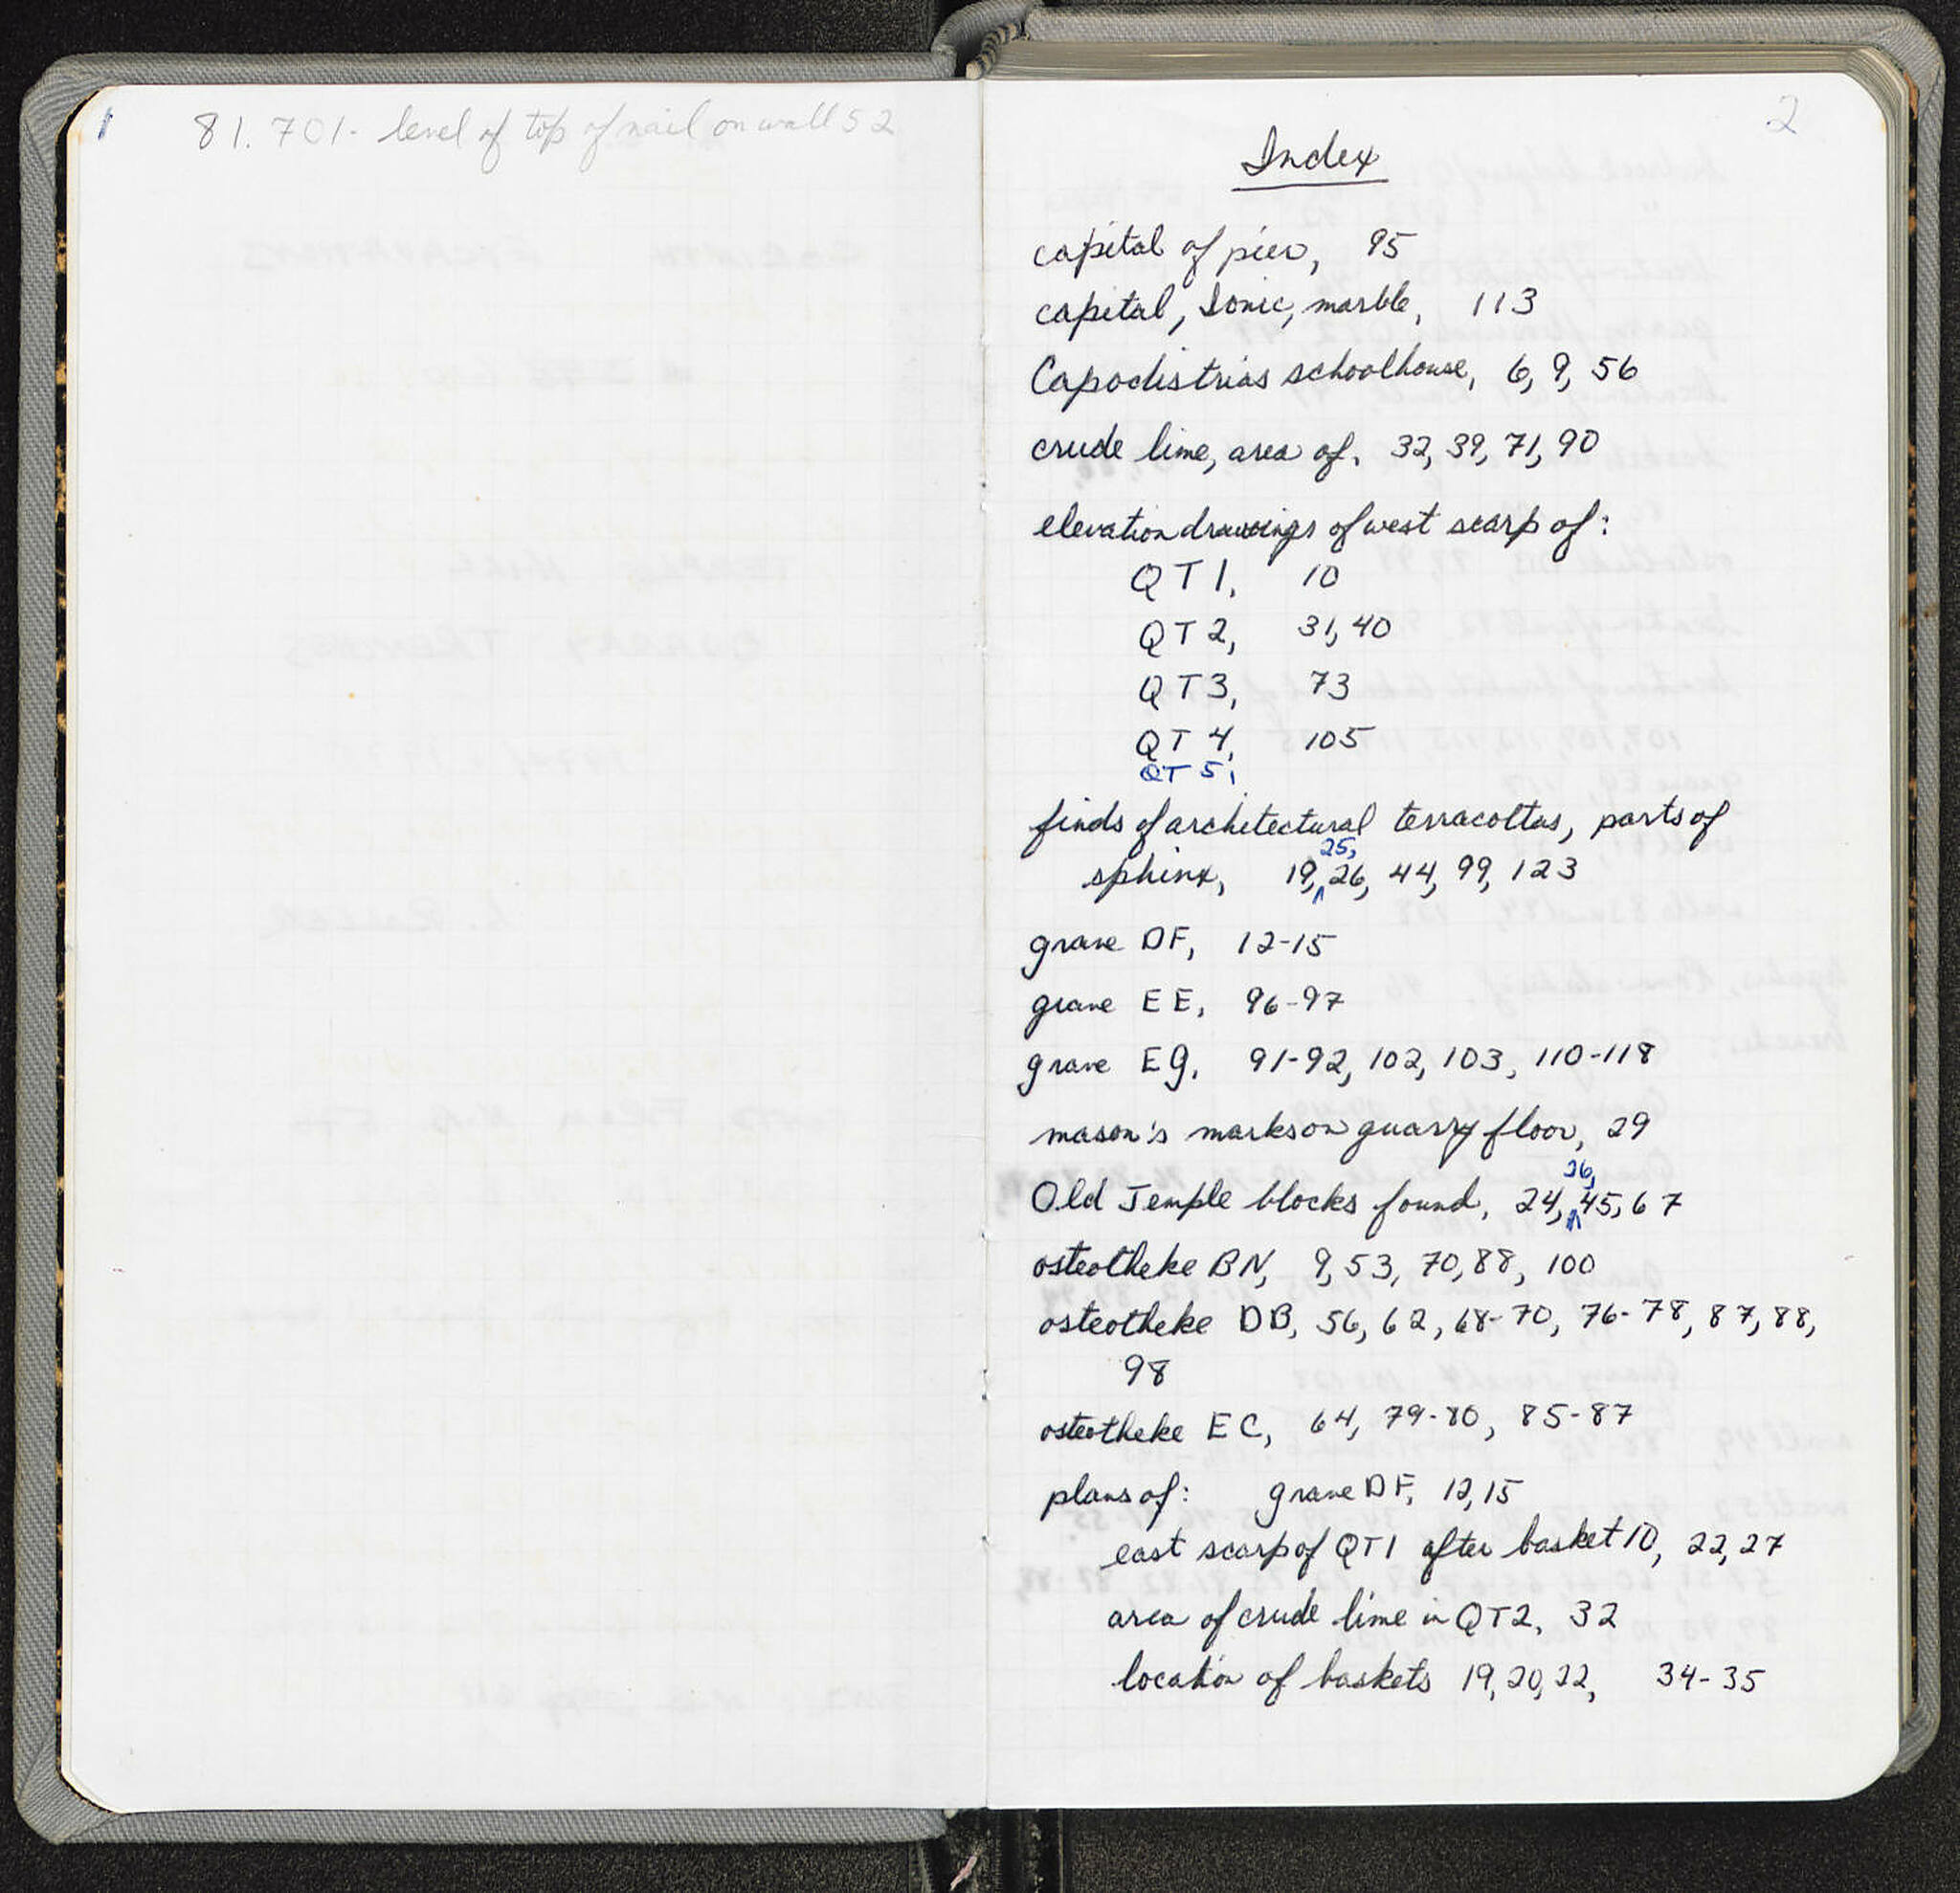 1
81.701 - level of top of nail on wall 52
2
Index
capital of pier, 95
capital, Ionic, marble, 113
Capodistrias schoolhouse, 6, 9, 56
crude lime, area of, 32, 39, 71, 90
elevation drawings of west scarp of:
QT1, 10
QT2, 31, 40
QT3, 73
QT4, 105
QT5,
finds of architectural terracottas, parts of
25,
sphinx, 19, 26, 44, 99, 123
grave DF, 12-15
grave EE, 96-97
grave EG, 91-92, 102, 103, 110-118
mason's marks on quarry floor, 29
26,
Old Temple blocks found, 24, 45, 67
osteotheke BN, 9, 53, 70, 88, 100
osteotheke DB, 56, 62, 68-70, 76-78, 87, 88,
98
osteotheke EC, 64, 79-80, 85-87
plans of: grave DF, 12, 15
east scarp of QT1 after basket 10, 22, 27
area of crude lime in QT2, 32
location of baskets 19, 20, 22, 34-35